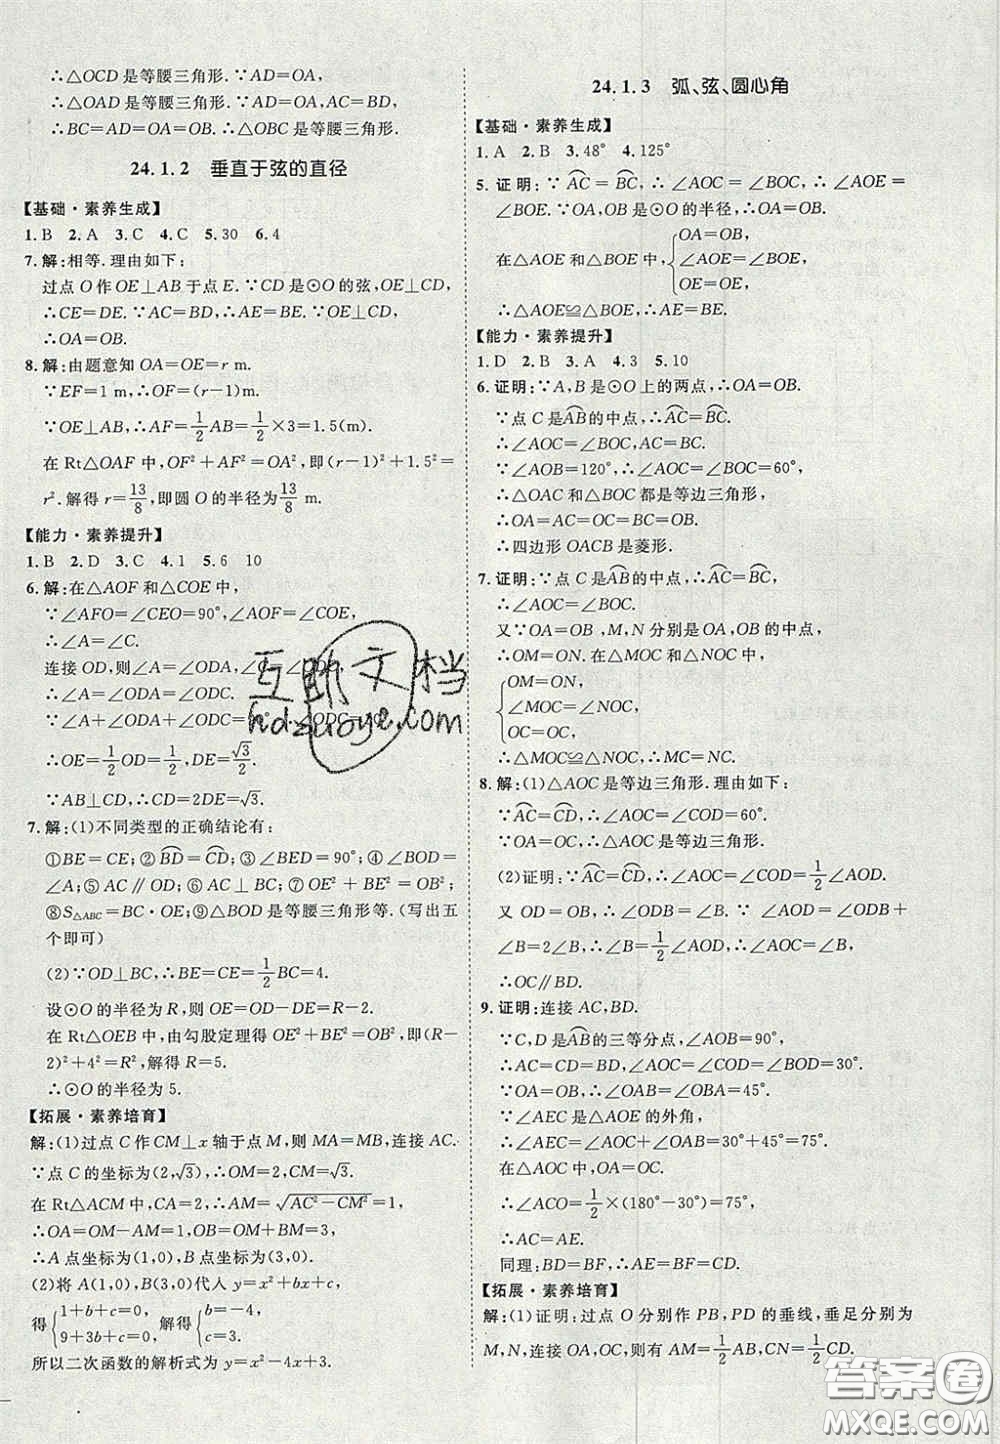 ∴△OCD 是等腰三角形.∵AD=OA,
∴△OAD 是等腰三角形.∵AD=OA,AC=BD,
∴BC=AD=OA.∴△OBC 是等腰三角形.
24.1.2 垂直于弦的直径
【基础·素养生成】
1.B 2.A 3.C 4.C 5.30 6.4
7.解:相等.理由如下:
过点 O 作 OE⊥AB 于点 E.∵CD 是⊙O 的弦,
∴CE=DE.∵AC=BD,∴AE=BE.∵OE⊥AB,
∴OA=OB.
8.解:由题意知 OA=OE=r m.
∵EF=1 m,∴OF=(r-1)m.
∵OE⊥AB,∴AF=1/2AB=1/2×3=1.5(m).
在 Rt△OAF 中,OF²+AF²=OA²,即(r-1)²+1.5²=
r².解得 r=13/8,即圆 O 的半径为13/8 m.
【能力·素养提升】
1.B 2.D 3.C 4.1 5.6 10
6.解:在△AOF 和△COE 中,
∵∠AFO=∠CEO=90°,∠AOF=∠COE,
∴∠A=∠C.
连接 OD,则∠A=∠ODA,∠C=∠ODC.
∴∠A=∠ODA=∠ODC.
∴OE=1/2OD=1/2,DE=√3/2.
∵AB⊥CD,∴CD=2DE=√3.
7.解:(1)不同类型的正确结论有:
①BE=CE;②BD⌒=CD⌒;③∠BED=90°;④∠BOD=
∠A;⑤AC∥OD;⑥AC⊥BC;⑦OE²+BE²=OB²;
⑧S△ABC=BC·OE;⑨△BOD 是等腰三角形等.(写出五
个即可)
(2)∵OD⊥BC,∴BE=CE=1/2BC=4.
设⊙O 的半径为 R,则 OE=OD-DE=R-2.
在 Rt△OEB 中,由勾股定理得 OE²+BE²=OB²,即(R-
2)²+4²=R²,解得 R=5.
∴⊙O 的半径为 5.
【拓展·素养培育】
解:(1)过点 C 作 CM⊥x 轴于点 M,则 MA=MB,连接 AC.
∵点 C 的坐标为(2,√3),∴OM=2,CM=√3.
在 Rt△ACM 中,CA=2,∴AM=√(AC²-CM²)=1,
∴OA=OM-AM=1,OB=OM+BM=3,
∴A 点坐标为(1,0),B 点坐标为(3,0).
(2)将 A(1,0),B(3,0)代入 y=x²+bx+c,
得{1+b+c=0, 9+3b+c=0, 解得{b=-4, c=3.
所以二次函数的解析式为 y=x²-4x+3.
24.1.3 弧、弦、圆心角
【基础·素养生成】
1.A 2.B 3.48° 4.125°
5.证明:∵AC⌒=BC⌒,∴∠AOC=∠BOC,∴∠AOE=
∠BOE.∵OA,OB 是⊙O 的半径,∴OA=OB.
在△AOE 和△BOE 中,{OA=OB, ∠AOE=∠BOE, OE=OE,
∴△AOE≌△BOE,∴AE=BE.
【能力·素养提升】
1.D 2.B 3.A 4.3 5.10
6.证明:∵A,B 是⊙O 上的两点,∴OA=OB.
∵点 C 是AB⌒的中点,∴AC⌒=BC⌒.
∴∠AOC=∠BOC,AC=BC.
∵∠AOB=120°,∴∠AOC=∠BOC=60°,
∴△OAC 和△BOC 都是等边三角形,
∴OA=AC=OC=BC=OB.
∴四边形 OACB 是菱形.
7.证明:∵点 C 是AB⌒的中点,∴AC⌒=BC⌒,
∴∠AOC=∠BOC.
又∵OA=OB,M,N 分别是 OA,OB 的中点,
∴OM=ON.在△MOC 和△NOC 中,
{OM=ON, ∠MOC=∠NOC, OC=OC,
∴△MOC≌△NOC,∴MC=NC.
8.解:(1)△AOC 是等边三角形.理由如下:
∵AC⌒=CD⌒,∴∠AOC=∠COD=60°.
∵OA=OC,∴△AOC 是等边三角形.
(2)证明:∵AC⌒=CD⌒,∴∠AOC=∠COD=1/2∠AOD.
又 OD=OB,∴∠ODB=∠B,∴∠AOD=∠ODB+
∠B=2∠B,∴∠B=1/2∠AOD,∴∠AOC=∠B,
∴OC∥BD.
9.证明:连接 AC,BD.
∵C,D 是AB⌒的三等分点,∠AOB=90°,
∴AC=CD=DB,∠AOC=∠COD=∠BOD=30°.
∵OA=OB,∴∠OAB=∠OBA=45°.
∵∠AEC 是△AOE 的外角,
∴∠AEC=∠AOC+∠OAE=30°+45°=75°.
在△AOC 中,OA=OC,
∴∠ACO=1/2×(180°-30°)=75°,
∴AC=AE.
同理:BD=BF,∴AE=BF=CD.
【拓展·素养培育】
解:(1)证明:过点 O 分别作 PB,PD 的垂线,垂足分别为
M,N,连接 OA,OC.则有 AM=1/2AB,CN=1/2CD.
互助文档
hdzuoye.com
答案圈
MXQE.COM